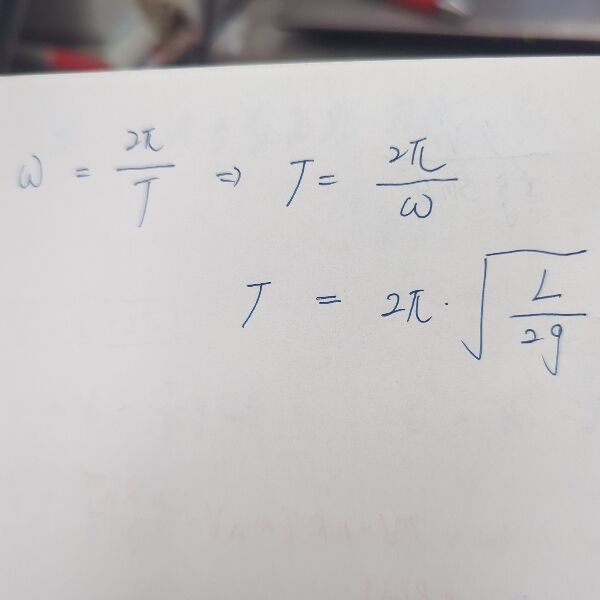 ω = 2π/T ⇒ T = 2π/ω
T = 2π · √(L/2g)